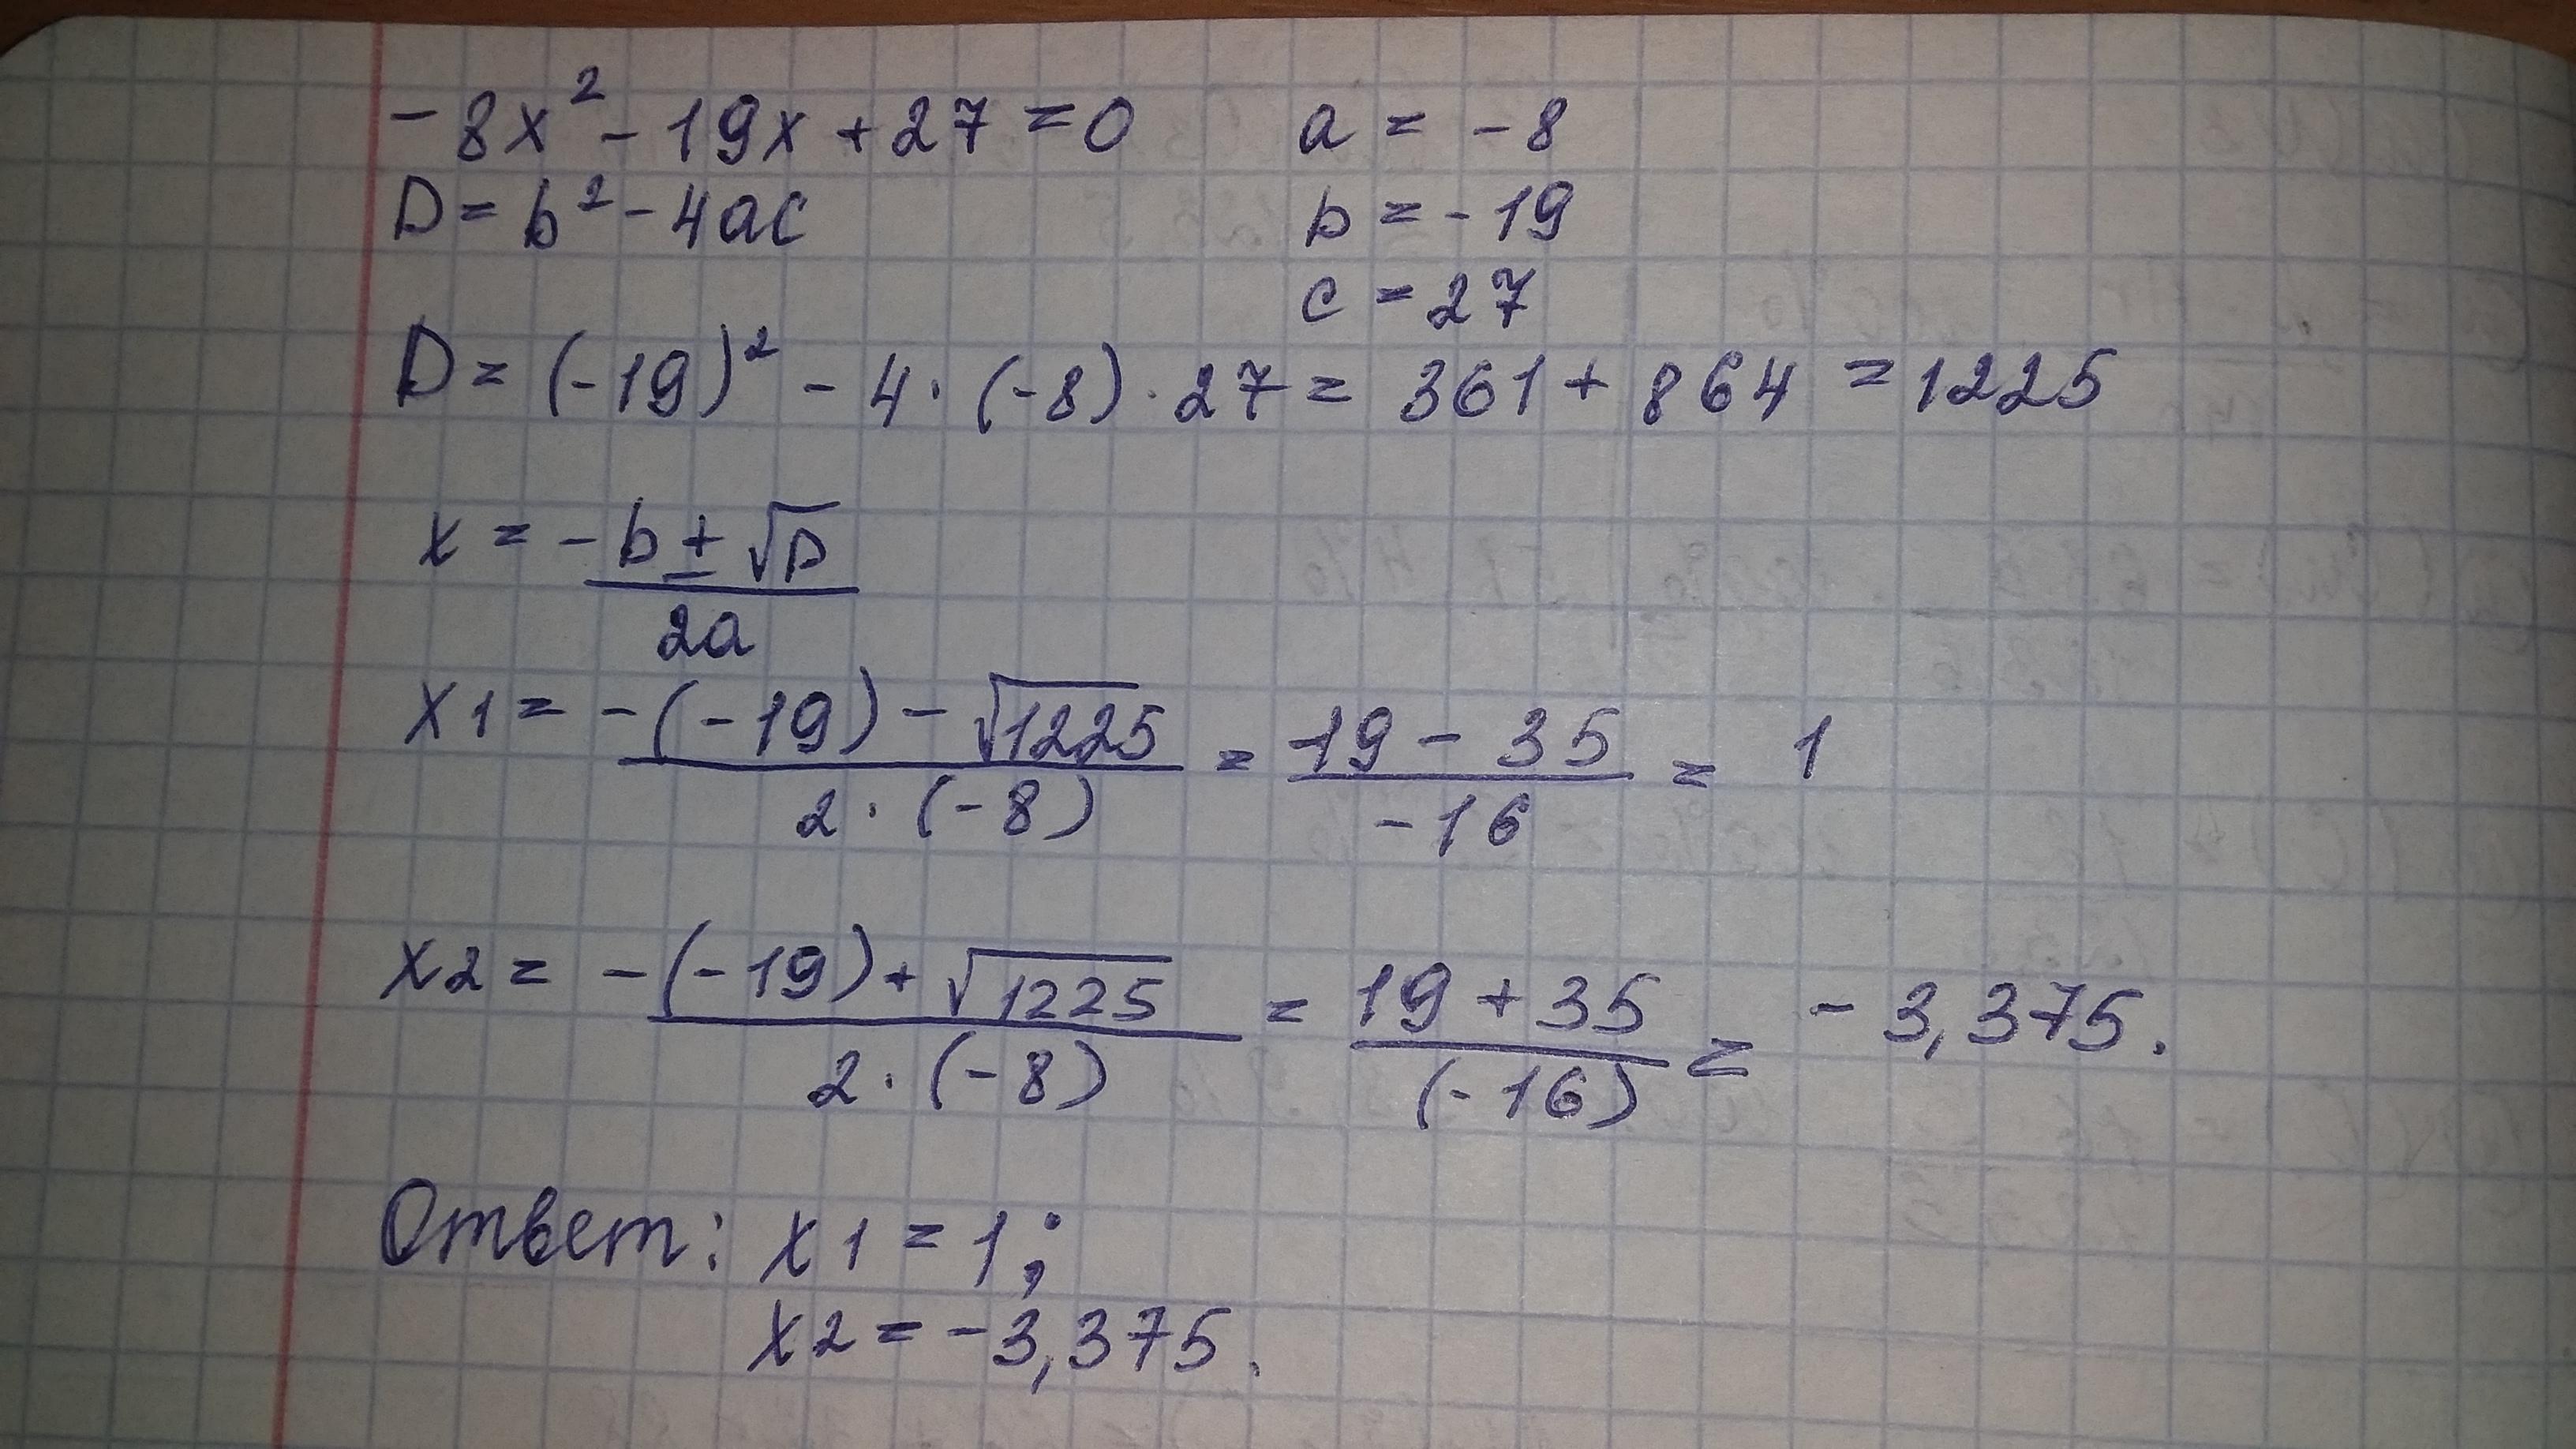 -8x² - 19x + 27 = 0 a = -8
D = b² - 4ac b = -19
c = 27
D = (-19)² - 4 · (-8) · 27 = 361 + 864 = 1225
x = -b ± √D
2a
x1 = -(-19) - √1225 = 19 - 35 = 1
2 · (-8) -16
x2 = -(-19) + √1225 = 19 + 35 = -3,375.
2 · (-8) (-16)
Ответ: x1 = 1;
x2 = -3,375.